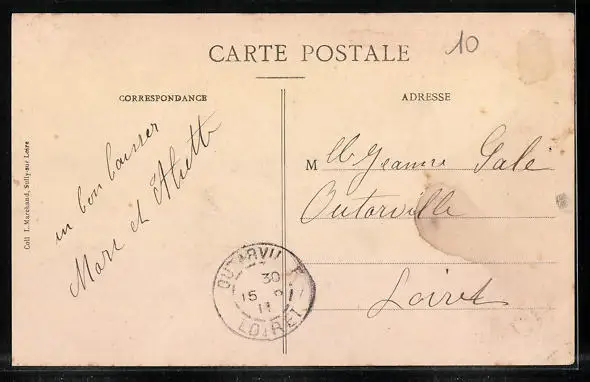 CARTE POSTALE
10
CORRESPONDANCE
ADRESSE
un bon baiser
Marc et
Mlle Jeanne Galé
Outarville
Loiret
OUTARVILLE
30
15
11
LOIRET
Coll. L. Marchand, Sully-sur Loire